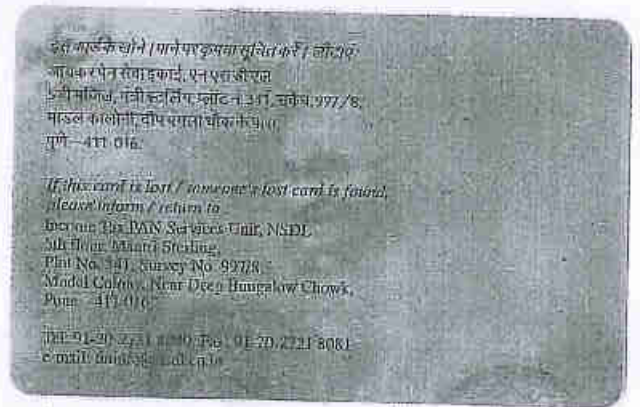 इस कार्ड के खोने / पाने पर कृपया सूचित करें / लौटाएं
आयकर पैन सेवा इकाई, एन एस डी एल
मंजिल, मंत्री स्टर्लिंग, प्लॉट नं. 341, सर्वे नं. 997/8,
मॉडल कालोनी, दीप बंगला चौक के पास,
पुणे – 411 016.
If this card is lost / someone's lost card is found,
please inform / return to
Income Tax PAN Services Unit, NSDL
5th floor, Mantri Sterling,
Plot No. 341, Survey No. 997/8,
Model Colony, Near Deep Bungalow Chowk,
Pune – 411 016.
Tel: 91-20-2721 8080, Fax: 91-20-2721 8081
e-mail: